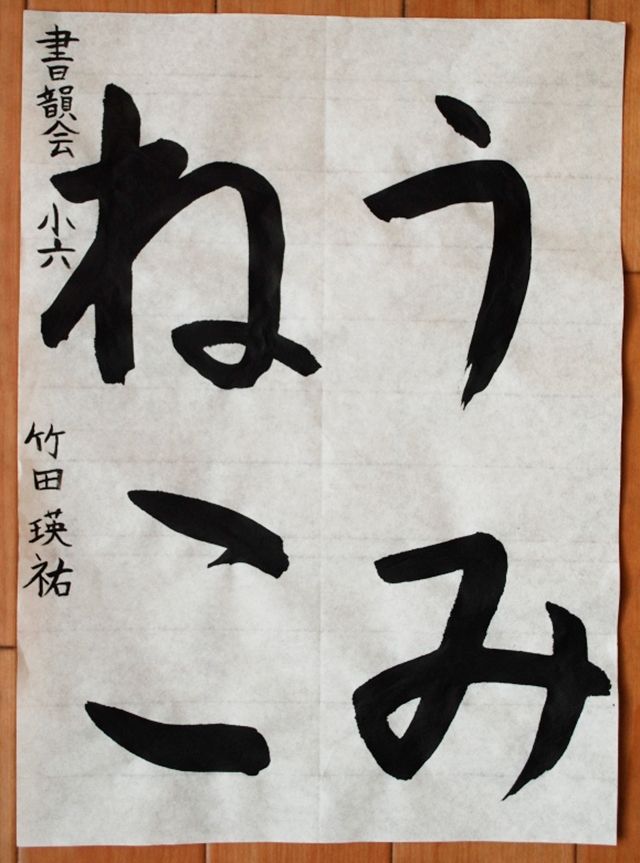 うみ
ねこ
書韻会 小六 竹田瑛祐